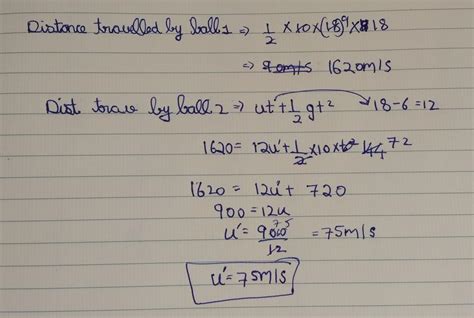 Distance travelled by ball 1 ⇒ 1/2 × 10 × (18)9 × 18
⇒ 90m/s 1620m/s
Dist trav by ball 2 ⇒ ut' + 1/2 gt² → 18-6=12
1620 = 12u' + 1/2 × 10 × 144 72
1620 = 12u' + 720
900 = 12u
u' = 900 75 / 12 = 75m/s
u' = 75m/s